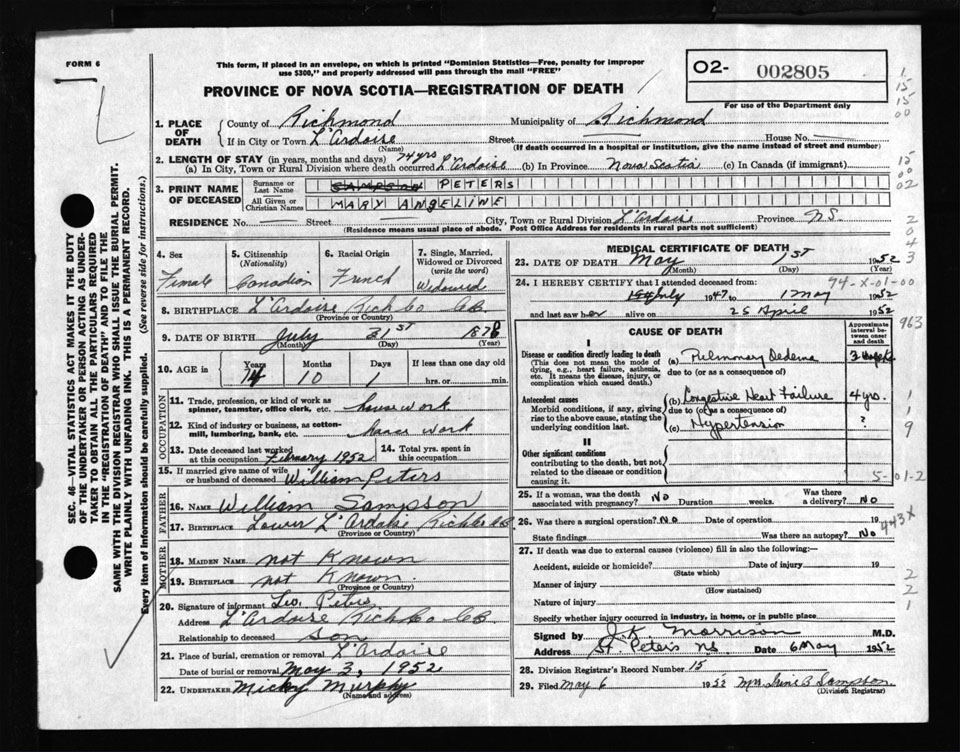 FORM 6
This form, if placed in an envelope, on which is printed "Dominion Statistics—Free, penalty for improper
use $300," and properly addressed will pass through the mail "FREE"
PROVINCE OF NOVA SCOTIA—REGISTRATION OF DEATH
02- 002805
For use of the Department only
1. PLACE OF DEATH
County of Richmond Municipality of Richmond
If in City or Town L'Ardoise Street House No.
(Name) (If death occurred in a hospital or institution, give the name instead of street and number)
2. LENGTH OF STAY (in years, months and days) 74 yrs
(a) In City, Town or Rural Division where death occurred L'Ardoise (b) In Province Nova Scotia (c) In Canada (if immigrant)
3. PRINT NAME OF DECEASED
Surname or Last Name SAMPSON PETERS
All Given or Christian Names MARY ANGELINE
RESIDENCE No. Street City, Town or Rural Division L'Ardoise Province N.S.
(Residence means usual place of abode. Post Office Address for residents in rural parts not sufficient)
4. Sex Female
5. Citizenship (Nationality) Canadian
6. Racial Origin French
7. Single, Married, Widowed or Divorced (write the word) Widowed
8. BIRTHPLACE L'Ardoise Rich Co CB
(Province or Country)
9. DATE OF BIRTH July 31st 1878
(Month) (Day) (Year)
10. AGE in Years Months Days If less than one day old
74 10 1 hrs. or min.
OCCUPATION
11. Trade, profession, or kind of work as spinner, teamster, office clerk, etc. housework
12. Kind of industry or business, as cotton-mill, lumbering, bank, etc. house work
13. Date deceased last worked at this occupation February 1952
14. Total yrs. spent in this occupation
15. If married give name of wife or husband of deceased William Peters
FATHER
16. NAME William Sampson
17. BIRTHPLACE Lower L'Ardoise Rich Co CB
(Province or Country)
MOTHER
18. MAIDEN NAME not Known
19. BIRTHPLACE not Known
(Province or Country)
20. Signature of informant Leo. Peters
Address L'Ardoise Rich Co CB
Relationship to deceased Son
21. Place of burial, cremation or removal L'Ardoise
Date of burial or removal May 3, 1952
22. UNDERTAKER Micky Murphy
(Name and address)
MEDICAL CERTIFICATE OF DEATH
23. DATE OF DEATH May 1st 1952
(Month) (Day) (Year)
24. I HEREBY CERTIFY that I attended deceased from: 94-X-01-00
July 1947 to 1 May 1952
and last saw her alive on 25 April 1952
CAUSE OF DEATH
Approximate interval between onset and death
I
Disease or condition directly leading to death
(This does not mean the mode of dying, e.g., heart failure, asthenia, etc. It means the disease, injury, or complication which caused death.)
(a) Pulmonary Oedema 3
due to (or as a consequence of)
Antecedent causes
Morbid conditions, if any, giving rise to the above cause, stating the underlying condition last.
(b) Congestive Heart Failure 4 yrs.
due to (or as a consequence of)
(c) Hypertension ?
II
Other significant conditions
contributing to the death, but not related to the disease or condition causing it.
5-01-2
25. If a woman, was the death associated with pregnancy? No Duration weeks. Was there a delivery? No
26. Was there a surgical operation? No Date of operation 19
State findings Was there an autopsy? No
443X
27. If death was due to external causes (violence) fill in also the following:—
Accident, suicide or homicide? Date of injury 19
(State which)
Manner of injury
(How sustained)
Nature of injury
Specify whether injury occurred in industry, in home, or in public place
Signed by J.K. Morrison M.D.
Address St. Peters N.S. Date 6 May 1952
28. Division Registrar's Record Number 15
29. Filed May 6 1952 Mrs. Irene B Sampson
(Division Registrar)
SEC. 46—VITAL STATISTICS ACT MAKES IT THE DUTY
OF THE UNDERTAKER OR PERSON ACTING AS UNDER-
TAKER TO OBTAIN ALL THE PARTICULARS REQUIRED
IN THE "REGISTRATION OF DEATH" AND TO FILE IT
SAME WITH THE DIVISION REGISTRAR WHO SHALL ISSUE THE BURIAL PERMIT.
WRITE PLAINLY WITH UNFADING INK. THIS IS A PERMANENT RECORD.
Every item of information should be carefully supplied. (See reverse side for instructions.)
1
15
15
00
15
00
02
2
0
4
3
963
1
9
2
2
1